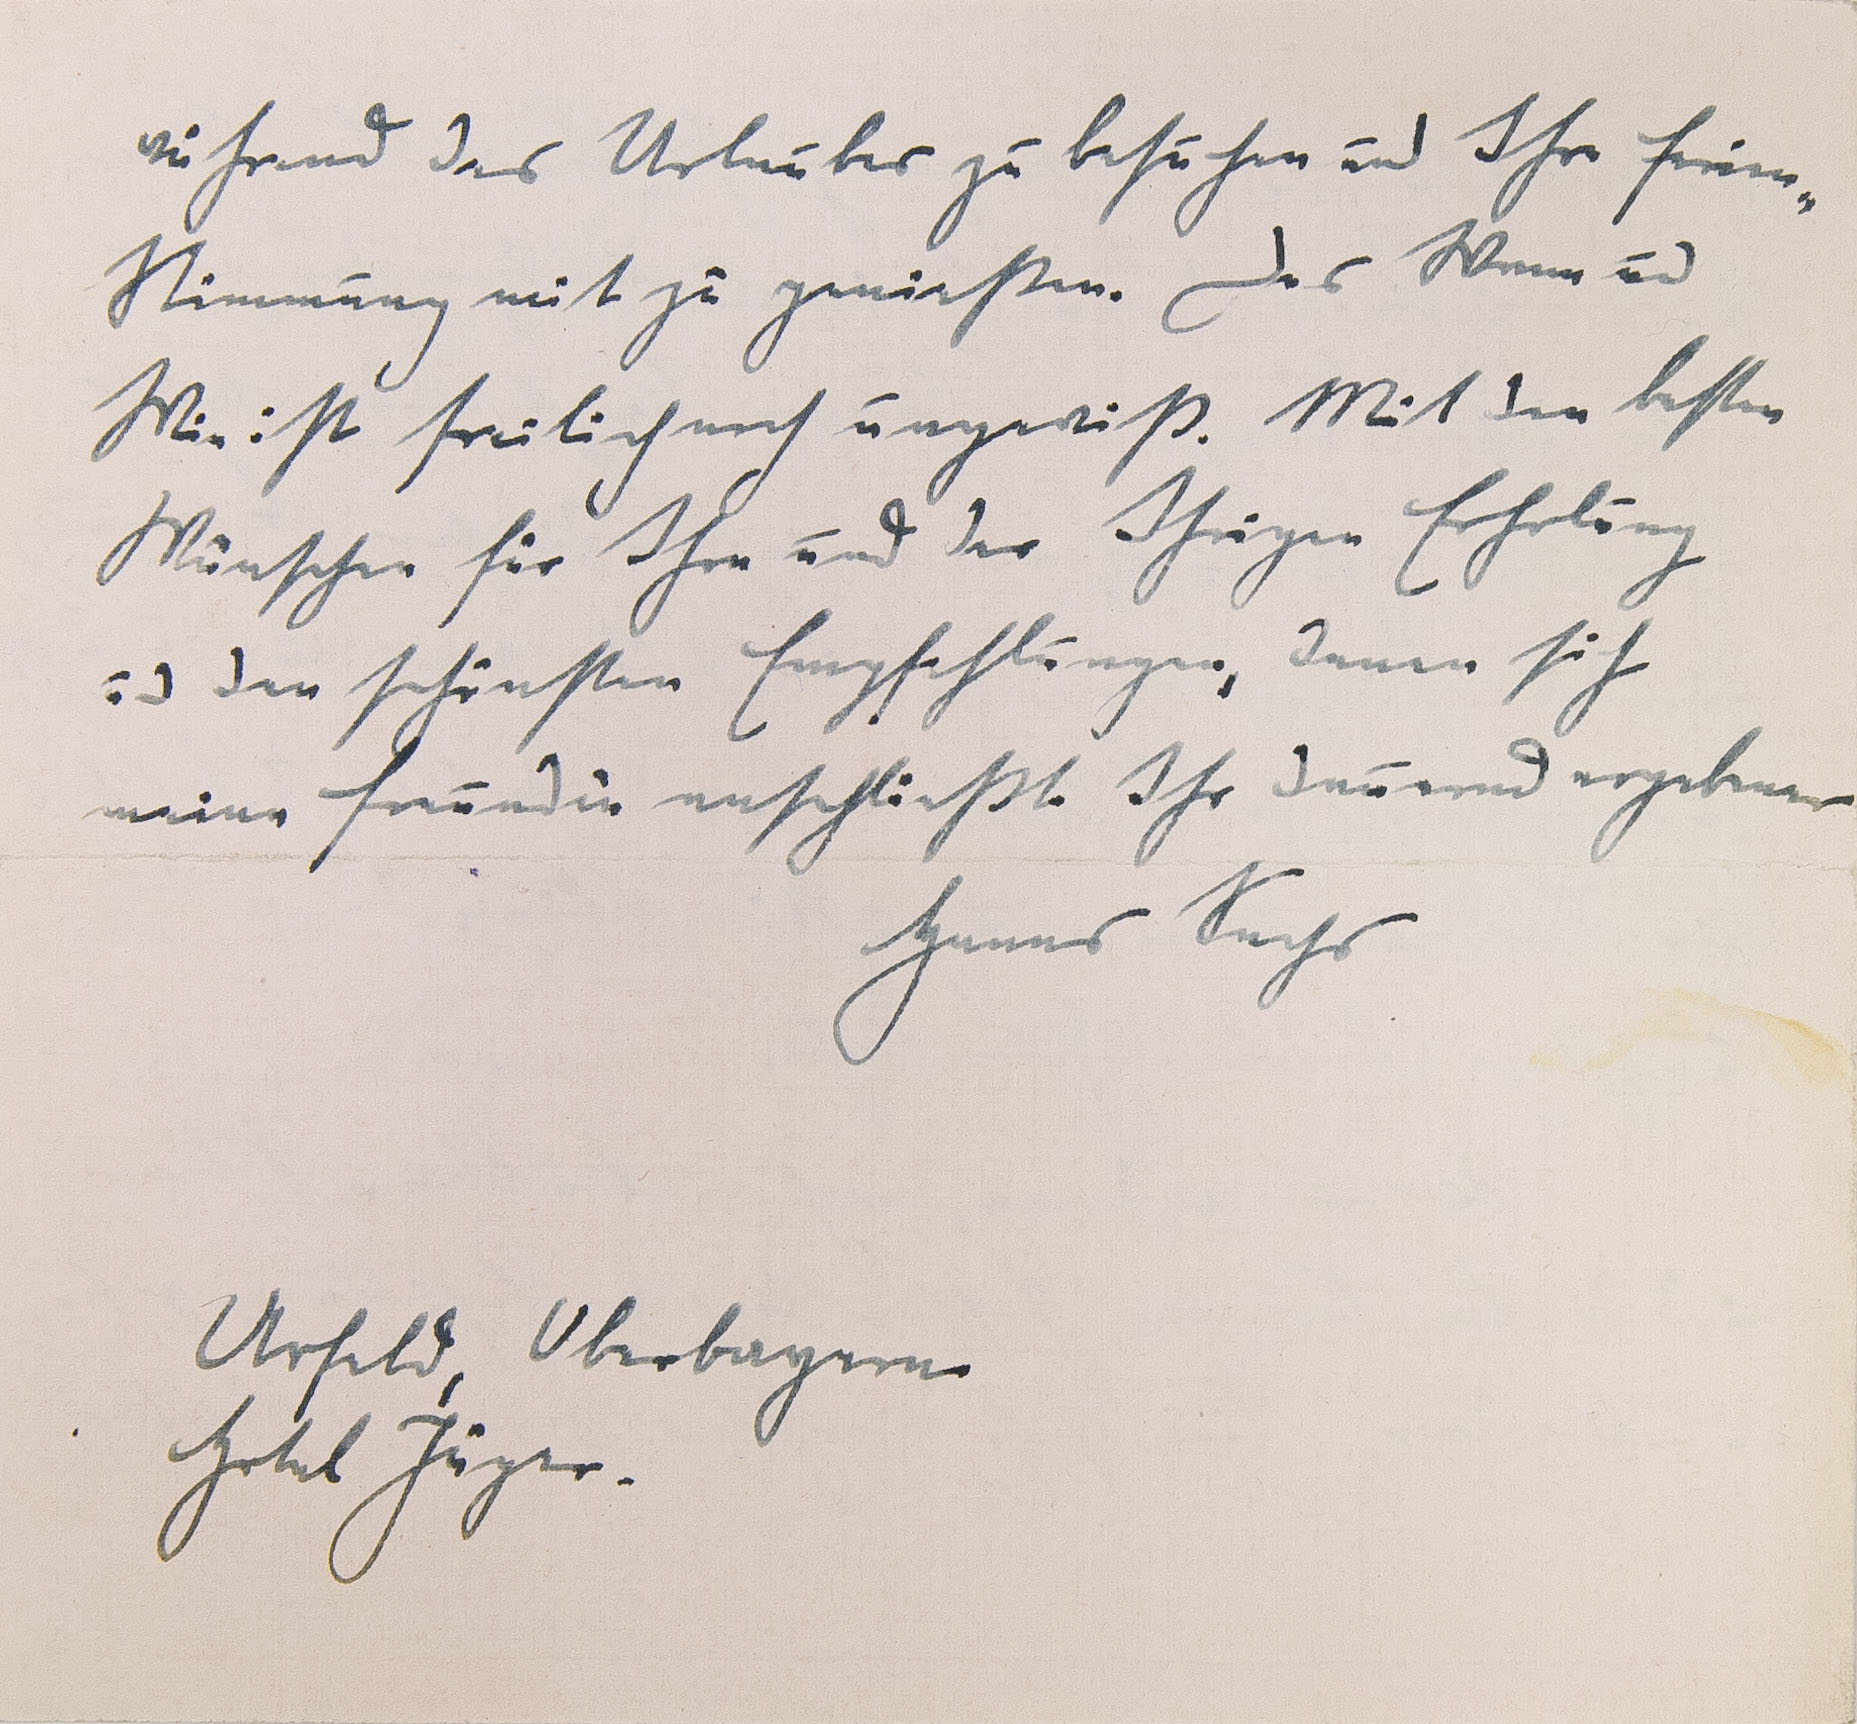 während des Urlaubes zu besuchen und Ihre Ferien-
stimmung mit zu genießen. Das Wann und
Wie ist freilich noch ungewiß. Mit den besten
Wünschen für Ihre und der Ihrigen Erholung
und den schönsten Empfehlungen, denen sich
meine Freundin anschließt Ihr dauernd ergebener
Hanns Sachs
Urfeld, Oberbayern
Hotel Jäger.